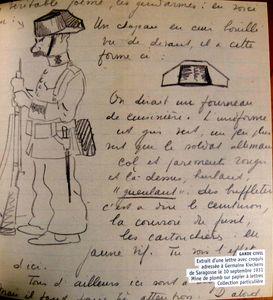 véritable poème, les gendarmes : en voici
un :
Un chapeau en cuir bouilli
vu de devant, il a cette
forme ci :
On dirait un fourneau
de cuisinière. L'uniforme
est gris vert, un peu plus
que le soldat allemand
col et parements rouges
et là dessus, hurlant,
"gueulant", des buffleteries
c'est à dire le ceinturon,
la courroie du fusil,
les cartouchières, en
jaune vif. Tu vois l'effet
d'ici
tous d'ailleurs ici sont
GARDE CIVIL
Extrait d'une lettre avec croquis
adressée à Germaine Kieckens
de Saragosse le 10 septembre 1931
Mine de plomb sur papier à lettres
Collection particulière